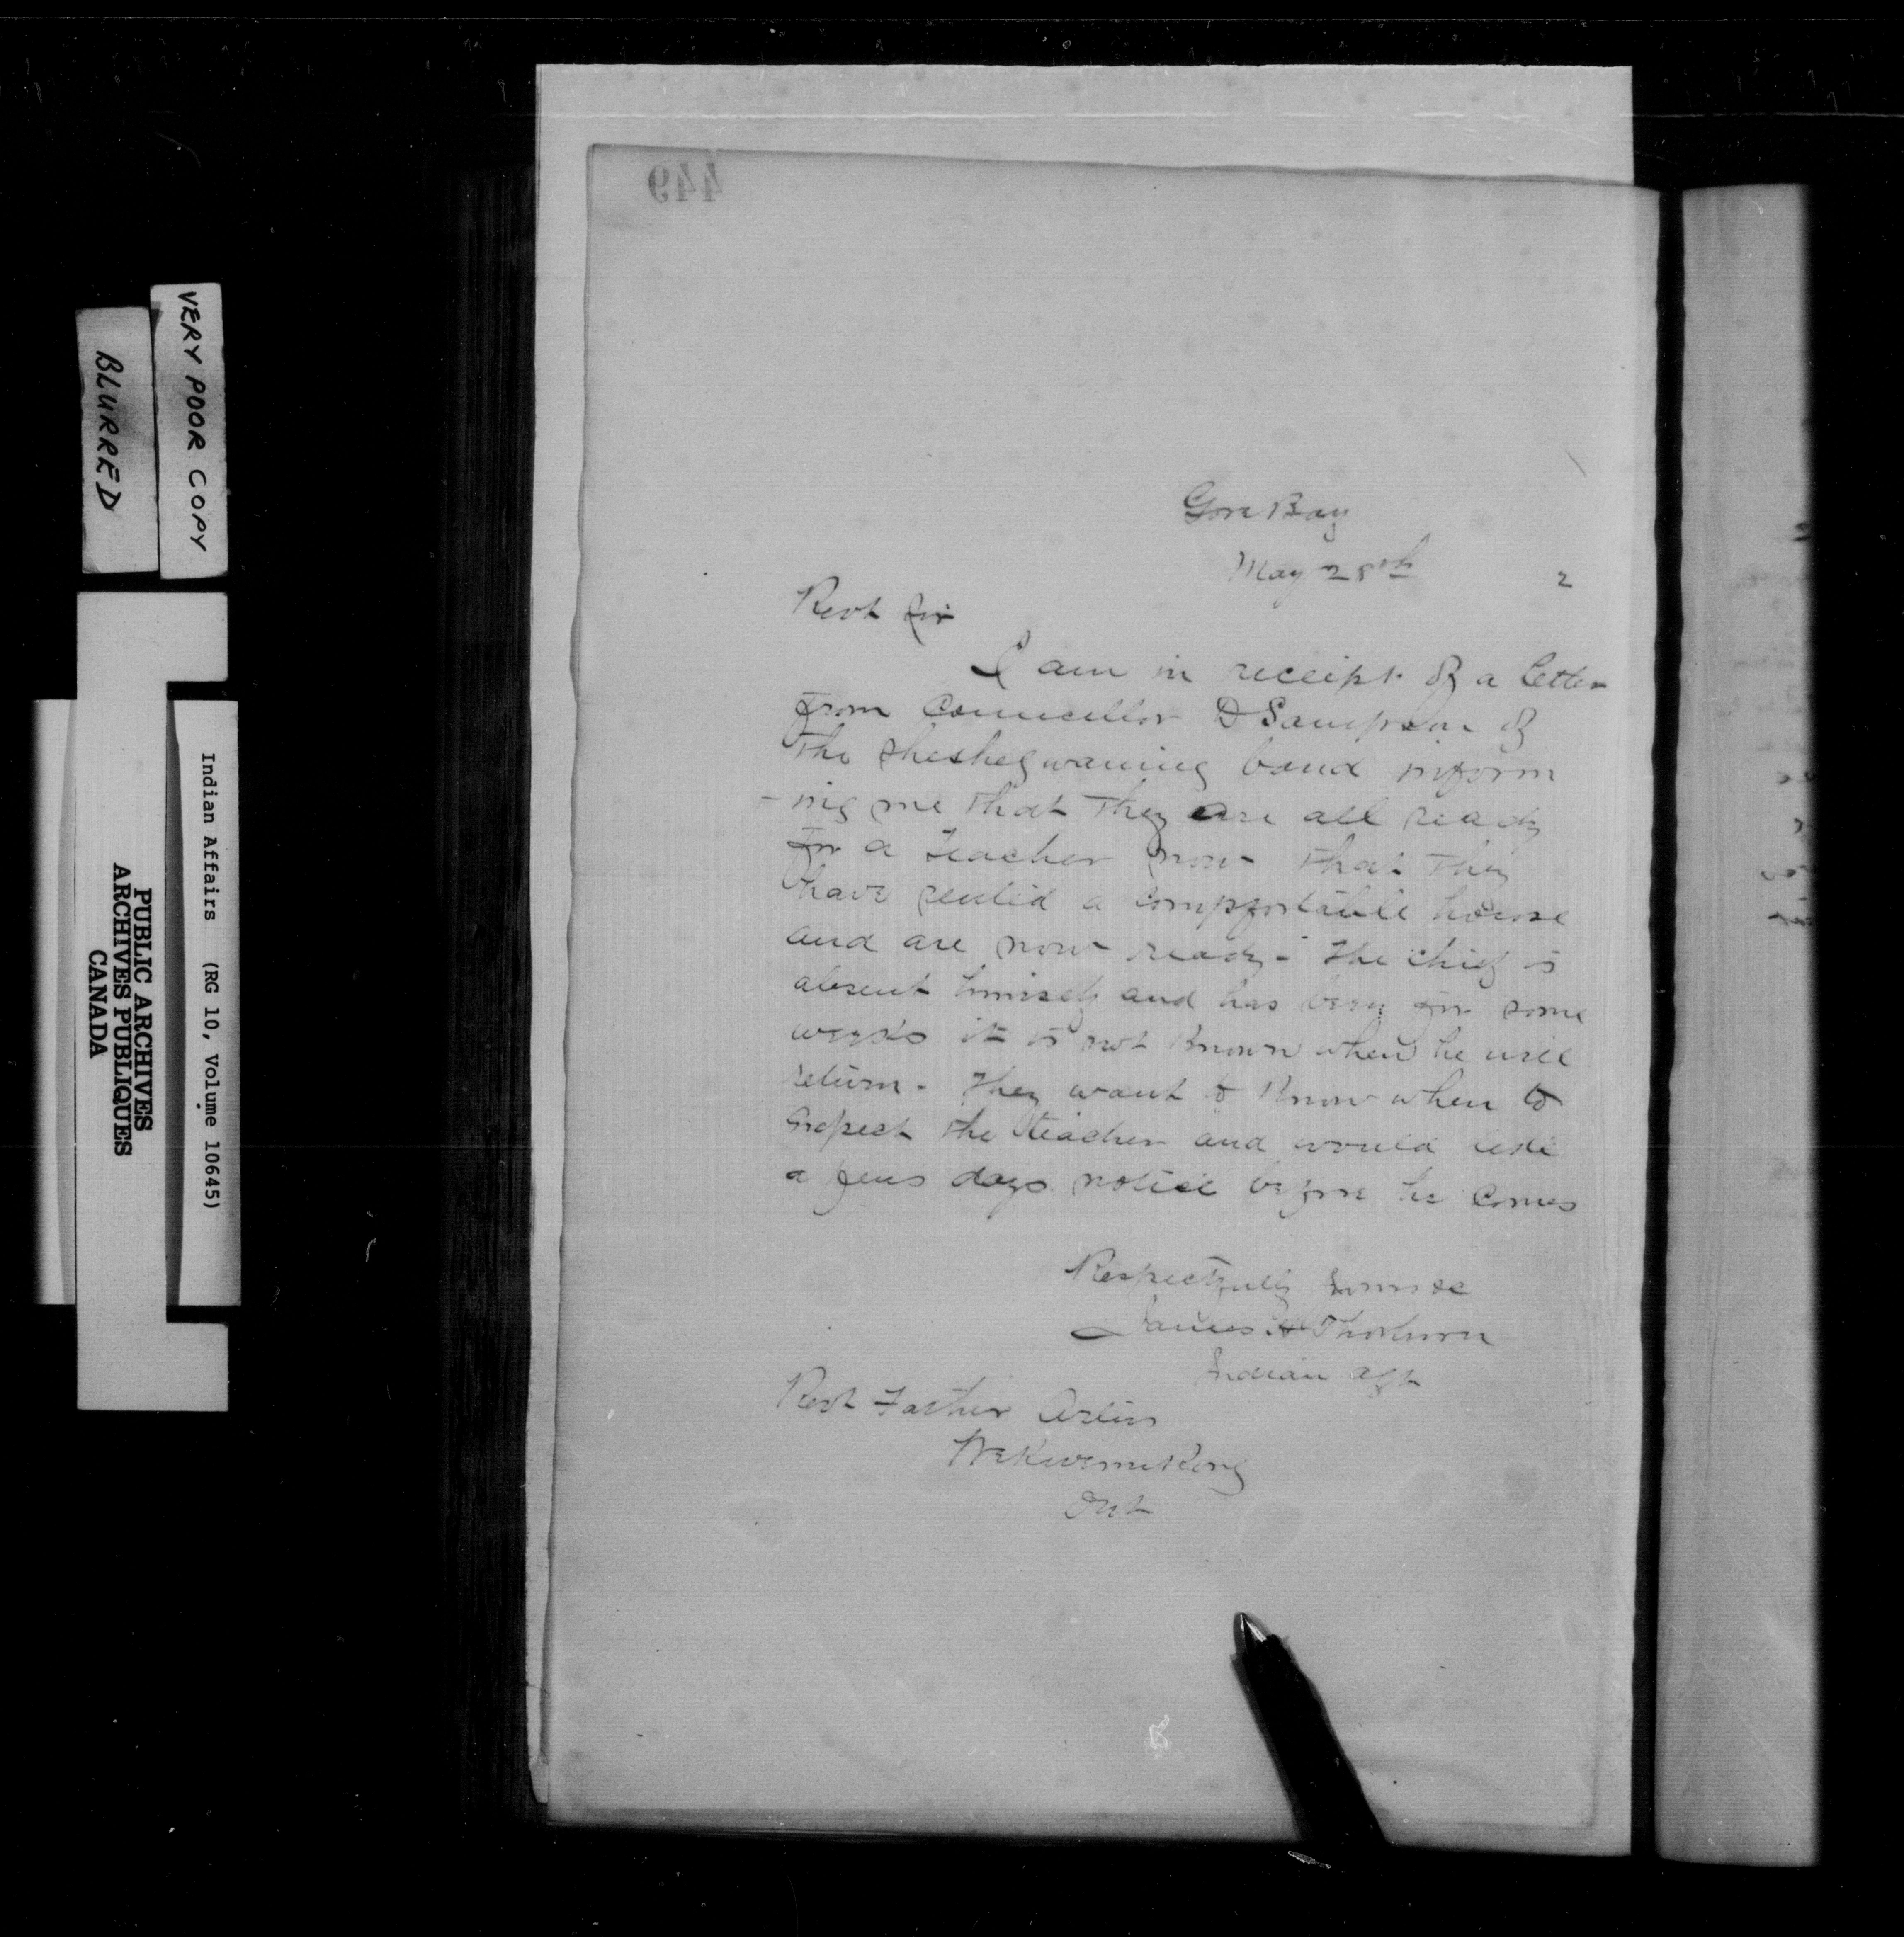 449
Gore Bay
May 28th 2
Revd Sir
I am in receipt of a letter
from Councillor D Sampson of
the Sheshegwaning band inform
-ing me that they are all ready
for a teacher now that they
have rented a compfortable house
and are now ready - The chief is
absent himself and has been for some
weeks it is not known when he will
return - They want to know when to
expect the teacher and would like
a few days notice before he comes
Respectfully yours &c
James H Thorburn
Indian Agt
Revd Father Artus
Wekwemikong
Ont
VERY POOR COPY
BLURRED
Indian Affairs (RG 10, Volume 10645)
PUBLIC ARCHIVES
ARCHIVES PUBLIQUES
CANADA